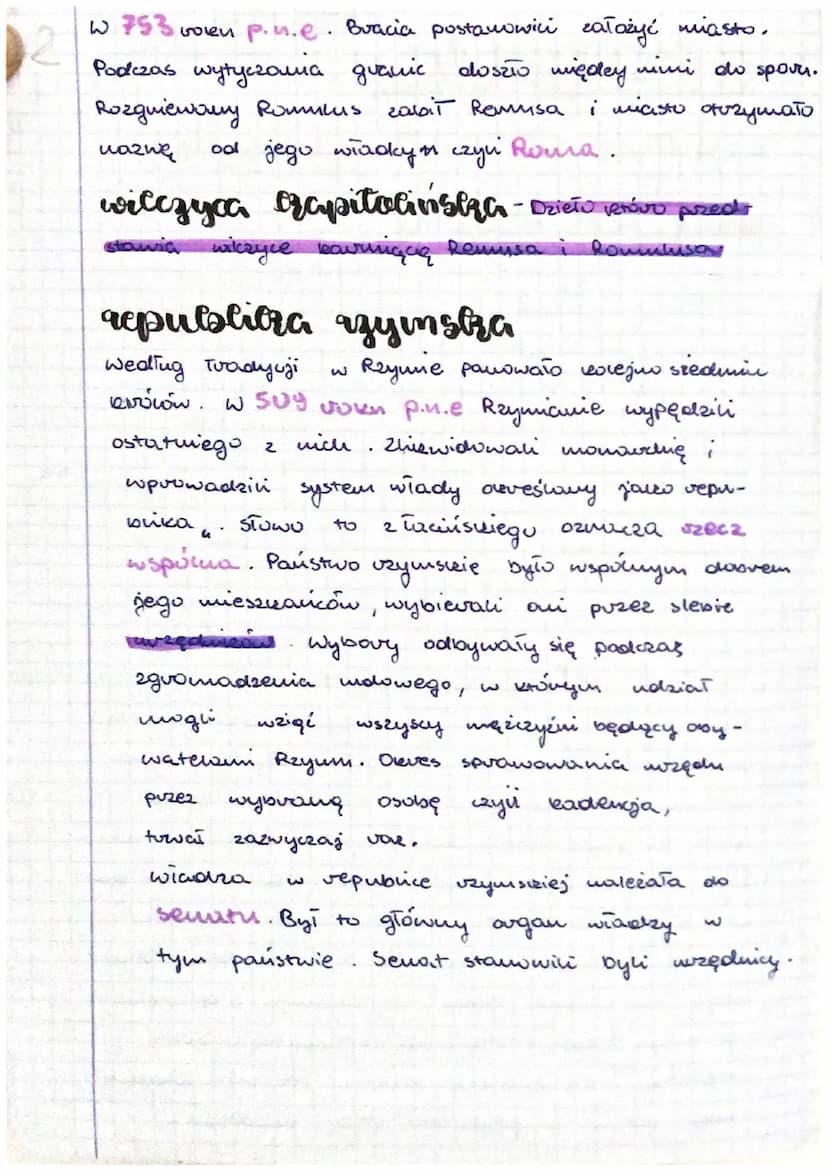 2
W 753 roku p.n.e. Bracia postanowili założyć miasto.
Podczas wytyczania granic doszło między nimi do sporu.
Rozgniewany Romulus zabił Remusa i miasto otrzymało
nazwę od jego władcy czyli Roma.
wilczyca kapitolińska - Dzieło które przed-
stawia wilczyce karmiącą Remusa i Romulusa
republika rzymska
Według Tradycji w Rzymie panowało kolejno siedmiu
królów. W 509 roku p.n.e Rzymianie wypędzili
ostatniego z nich. Zlikwidowali monarchię i
wprowadzili system władzy określany jako repu-
blika". Słowo to z łacińskiego oznacza rzecz
wspólna. Państwo rzymskie było wspólnym dobrem
jego mieszkańców, wybierali oni przez siebie
urzędników. Wybory odbywały się podczas
zgromadzenia ludowego, w którym udział
mogli wziąć wszyscy mężczyźni będący oby-
watelami Rzymu. Okres sprawowania urzędu
przez wybraną osobę czyli kadencja,
trwał zazwyczaj rok.
Władza w republice rzymskiej należała do
senatu. Był to główny organ władzy w
tym państwie. Senat stanowili byli urzędnicy.